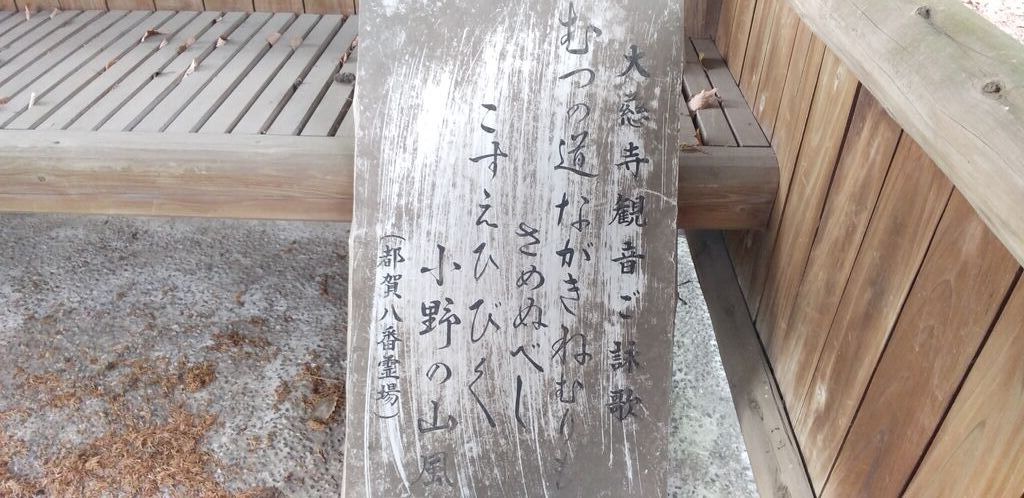 大慈寺観音ご詠歌
むつの道ながきねむりも
さめぬべし
こすえひびく
小野の山風
(都賀八番霊場)